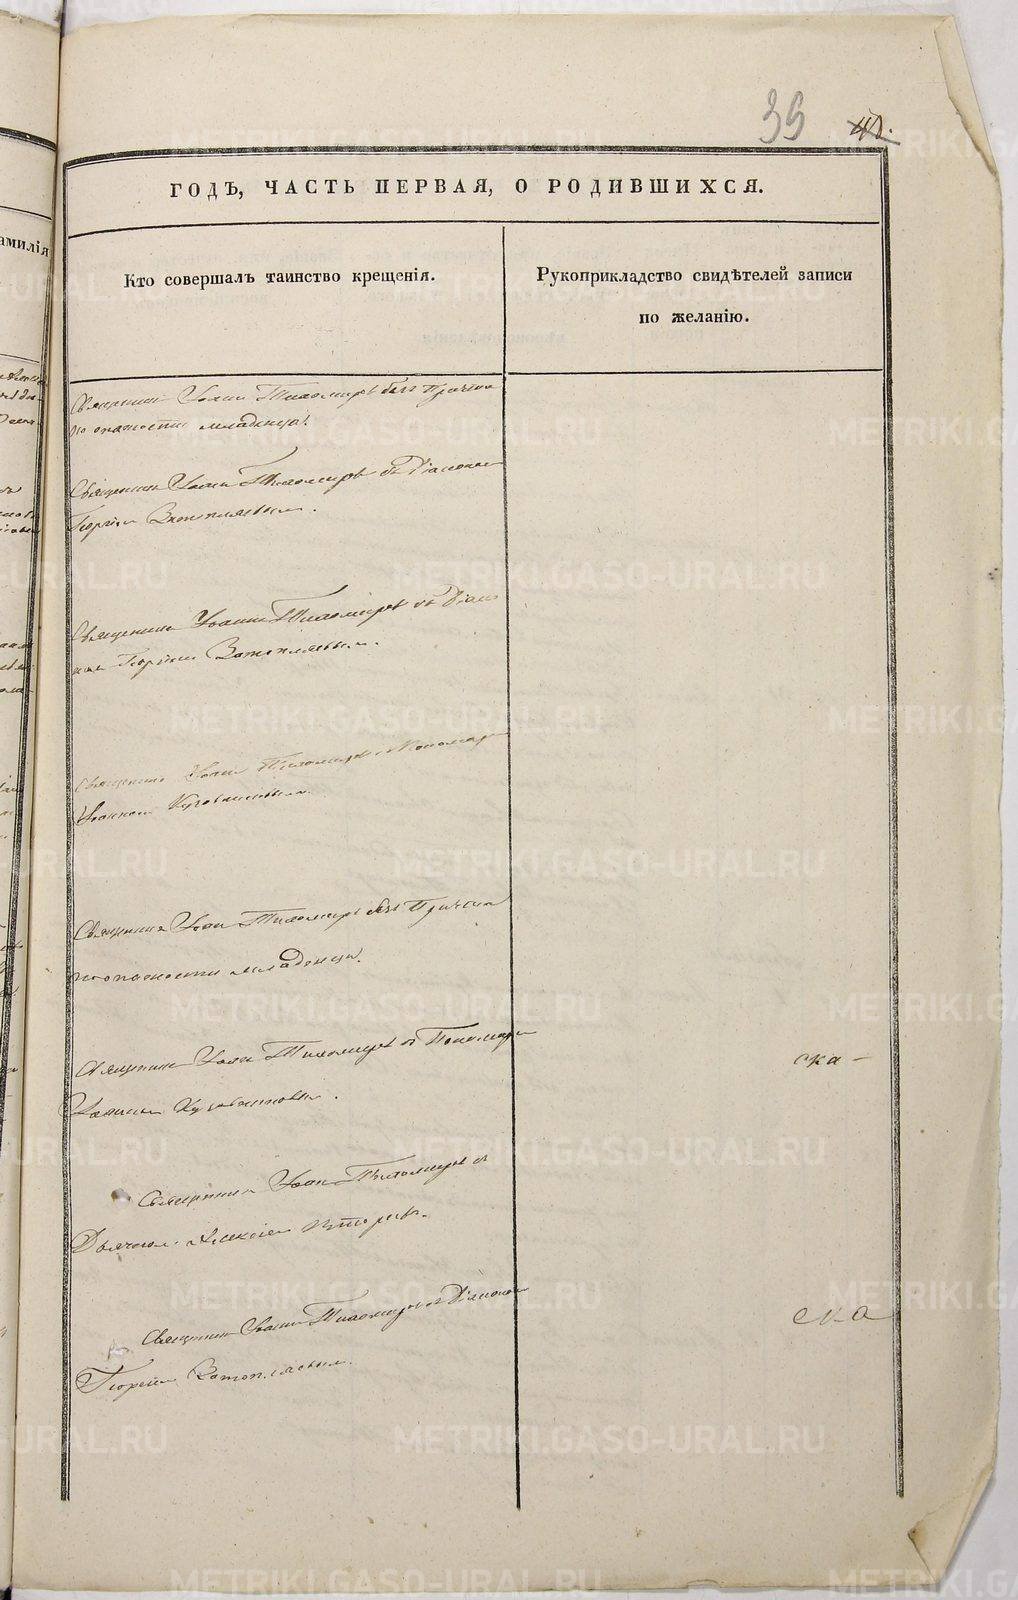 39
ГОДЪ, ЧАСТЬ ПЕРВАЯ, О РОДИВШИХСЯ.
амилія
Кто совершалъ таинство крещенія.
Рукоприкладство свидѣтелей записи
по желанію.
Священникъ Іоаннъ Тихомировъ безъ Причта
по опасности младенца.
Священникъ Іоаннъ Тихомировъ съ Діакономъ
Георгіем
Священникъ Іоаннъ Тихомировъ съ Діако
номъ Георгіем
Священникъ Іоаннъ Тихомировъ Пономарем
Іоанном
Священникъ Іоаннъ Тихомировъ безъ Причта
по опасности младенца.
Священникъ Іоаннъ Тихомировъ съ Пономарем
ска-
Іоанном
Священникъ Іоаннъ Тихомировъ съ
Дьячком Алексіем
Священникъ Іоаннъ Тихомировъ съ Діакономъ
ска
Георгіем
METRIKI.GASO-URAL.RU